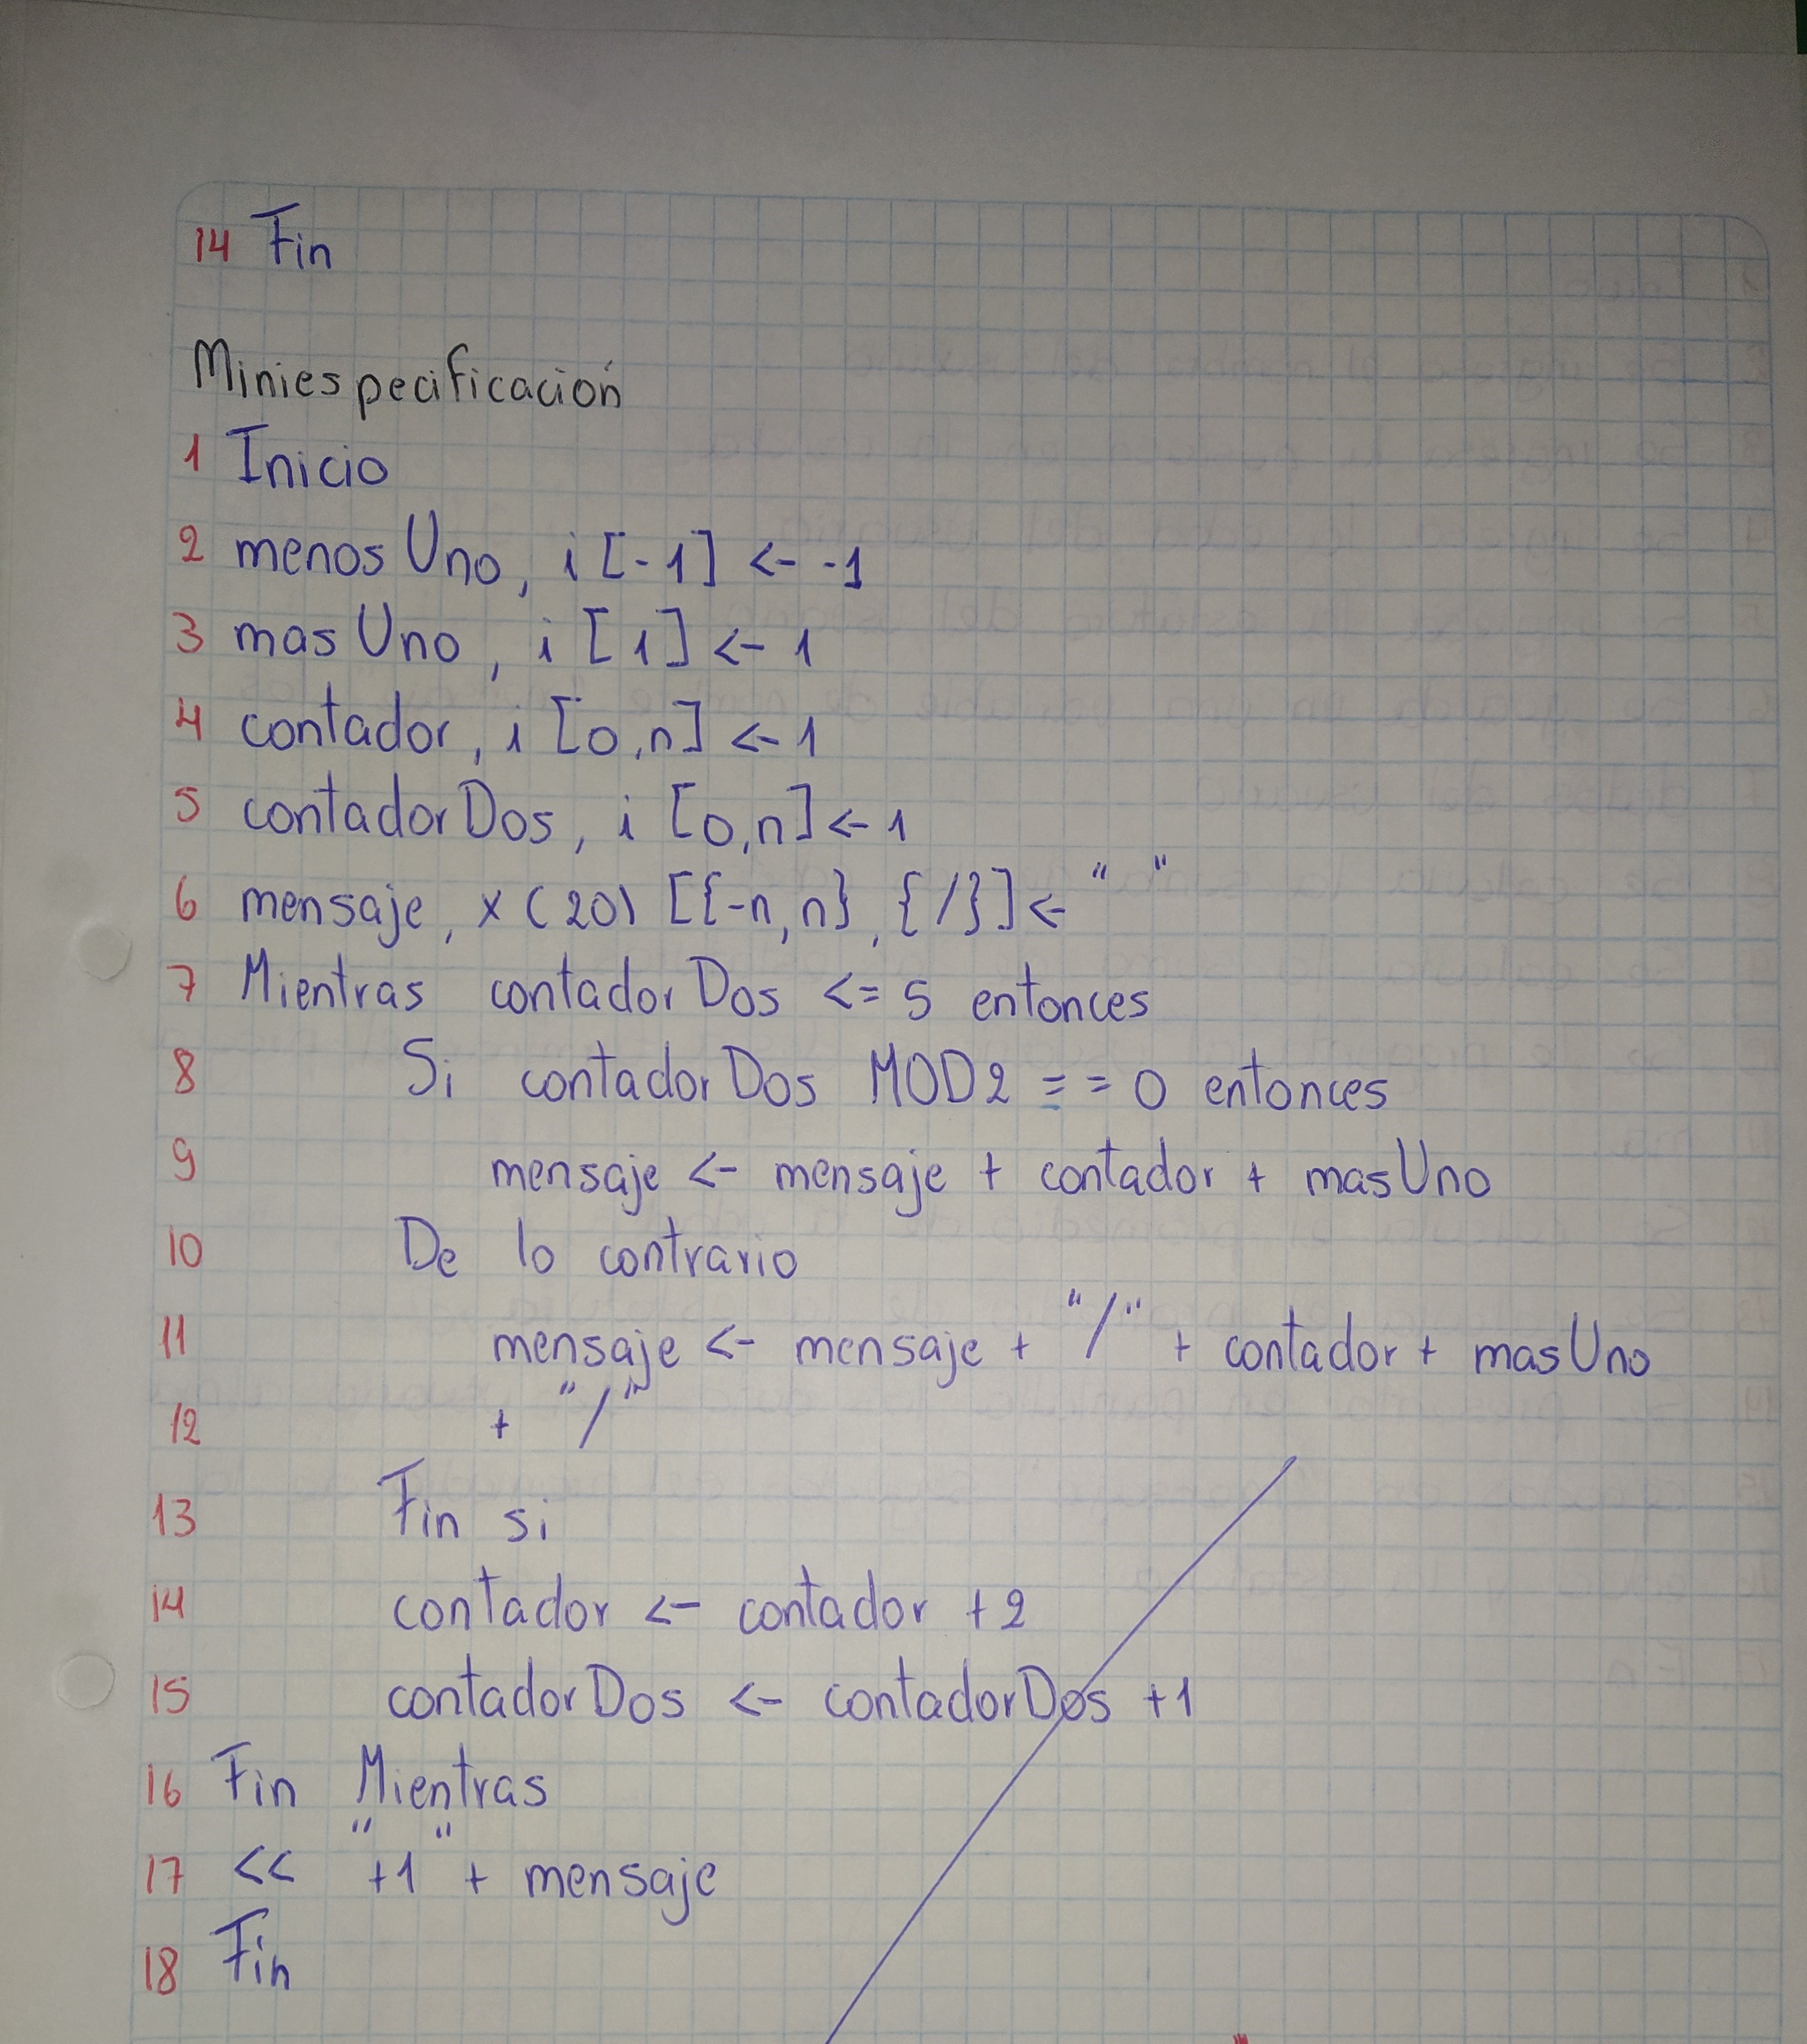 14 Fin
Miniespecificación
1 Inicio
2 menosUno, i [-1] <- -1
3 masUno, i [1] <- 1
4 contador, i [0,n] <- 1
5 contadorDos, i [0,n] <- 1
6 mensaje, x(20) [{-n,n}, {/}] <- " "
7 Mientras contadorDos <= 5 entonces
8 Si contadorDos MOD2 == 0 entonces
9 mensaje <- mensaje + contador + masUno
10 De lo contrario
11 mensaje <- mensaje + "/" + contador + masUno
12 + "/"
13 Fin si
14 contador <- contador +2
15 contadorDos <- contadorDos +1
16 Fin Mientras
17 << "+1" + mensaje
18 Fin